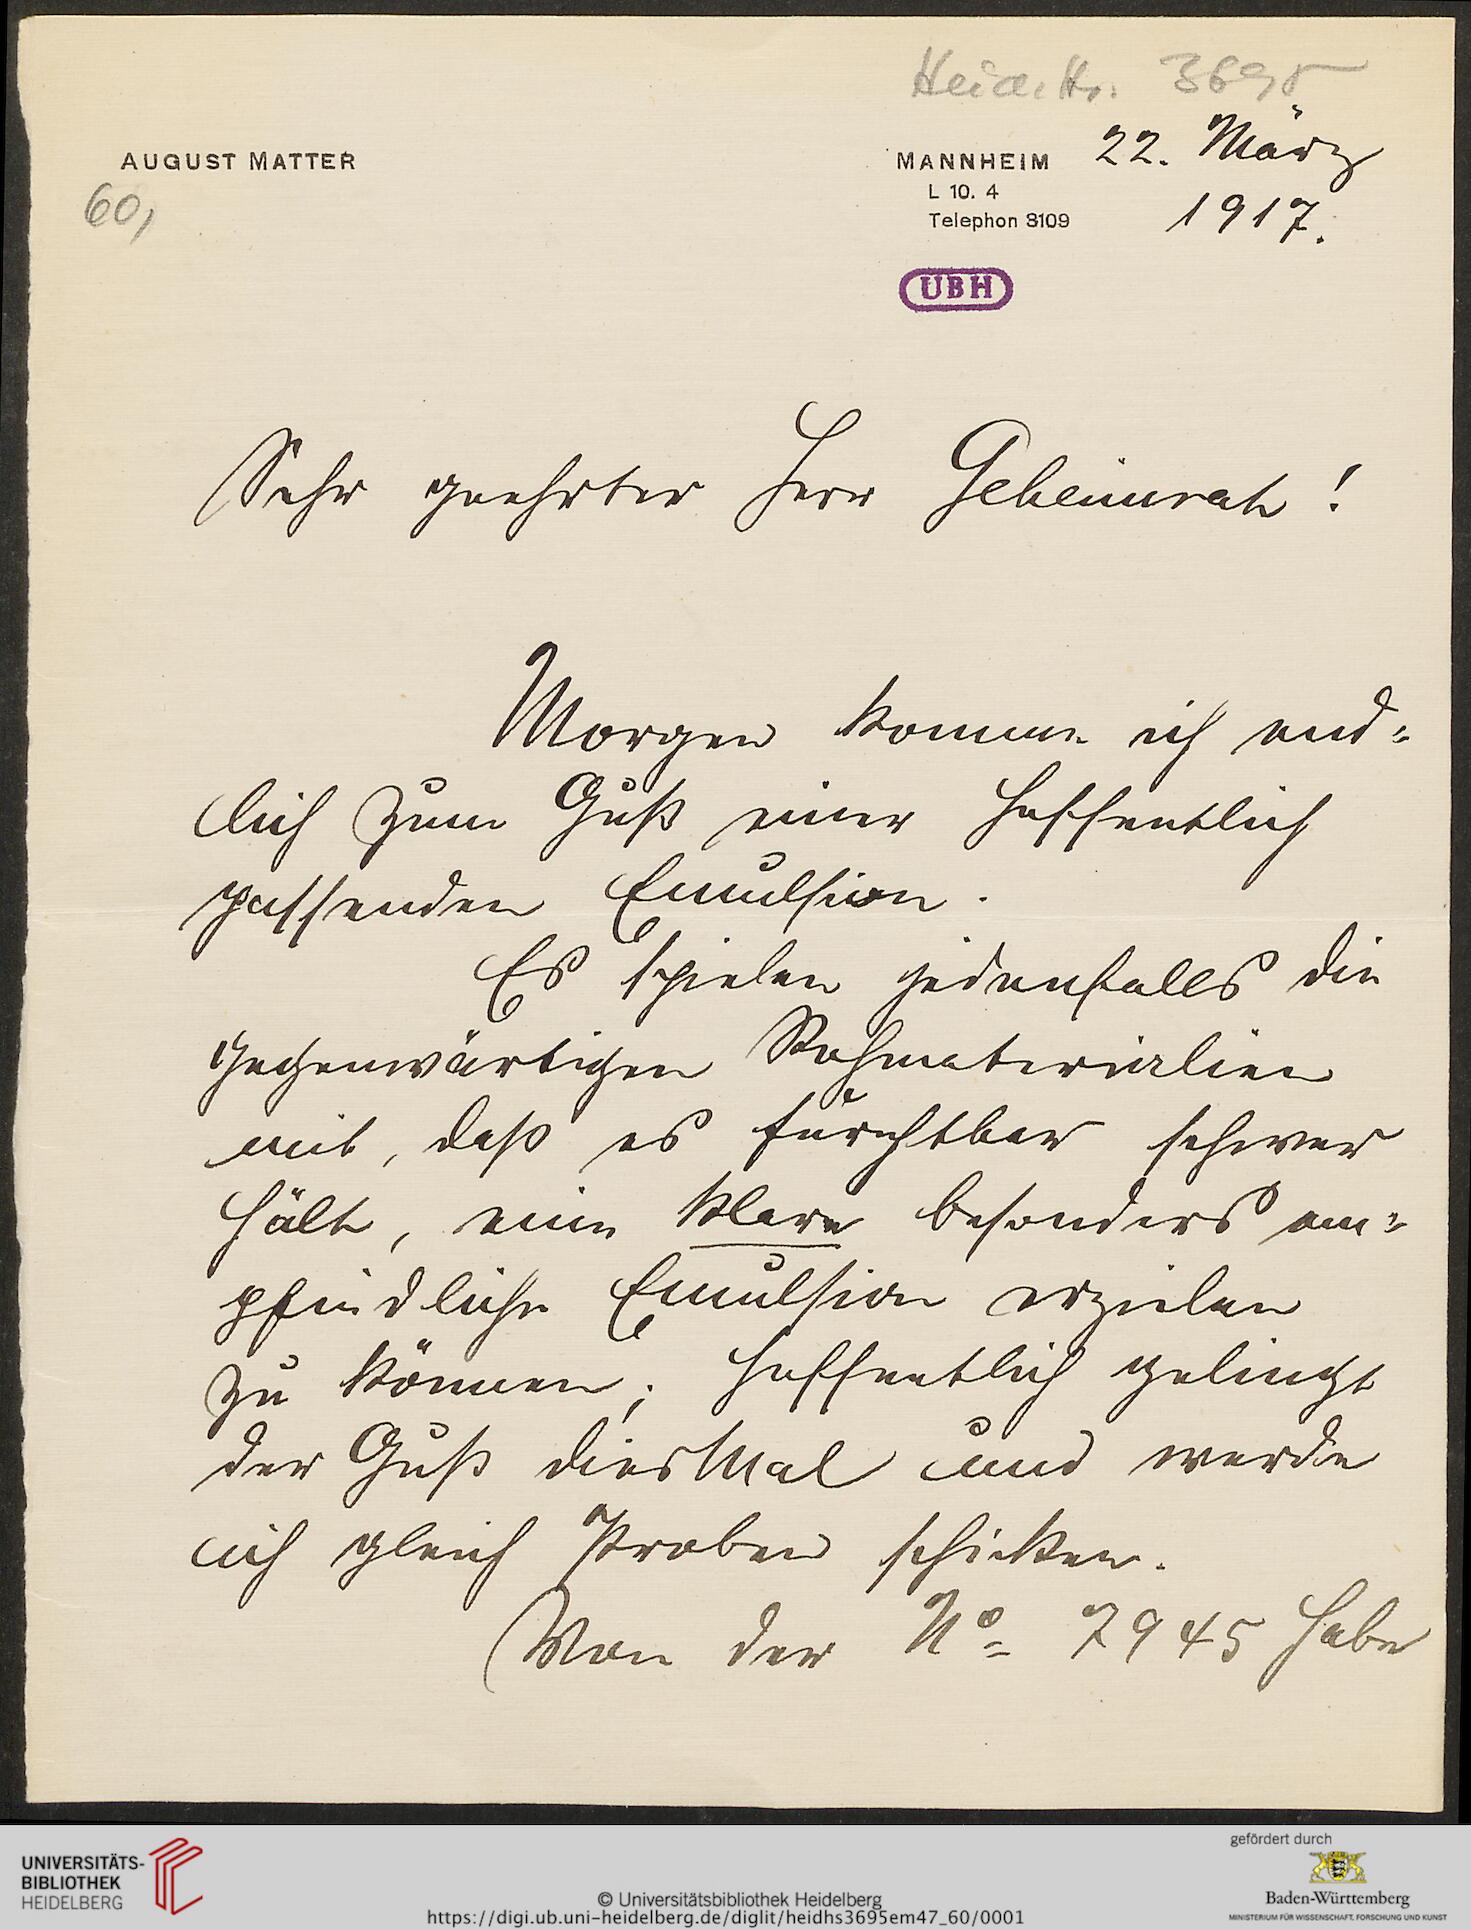 Heid. Hs. 3695
AUGUST MATTER
MANNHEIM 22. März
L 10. 4
Telephon 3109
1917.
60,
UBH
Sehr geehrter Herr Geheimrat!
Morgen komme ich end-
lich zum Guß einer hoffentlich
passenden Emulsion.
Es spielen jedenfalls die
gegenwärtigen Rohmaterialien
mit, daß es furchtbar schwer
hält, eine klare besonders em-
pfindliche Emulsion erzielen
zu können; hoffentlich gelingt
der Guß diesmal und werde
ich gleich Proben schicken.
Von der No 7945 habe
UNIVERSITÄTS-
BIBLIOTHEK
HEIDELBERG
© Universitätsbibliothek Heidelberg
https://digi.ub.uni-heidelberg.de/diglit/heidhs3695em47_60/0001
gefördert durch
Baden-Württemberg
MINISTERIUM FÜR WISSENSCHAFT, FORSCHUNG UND KUNST